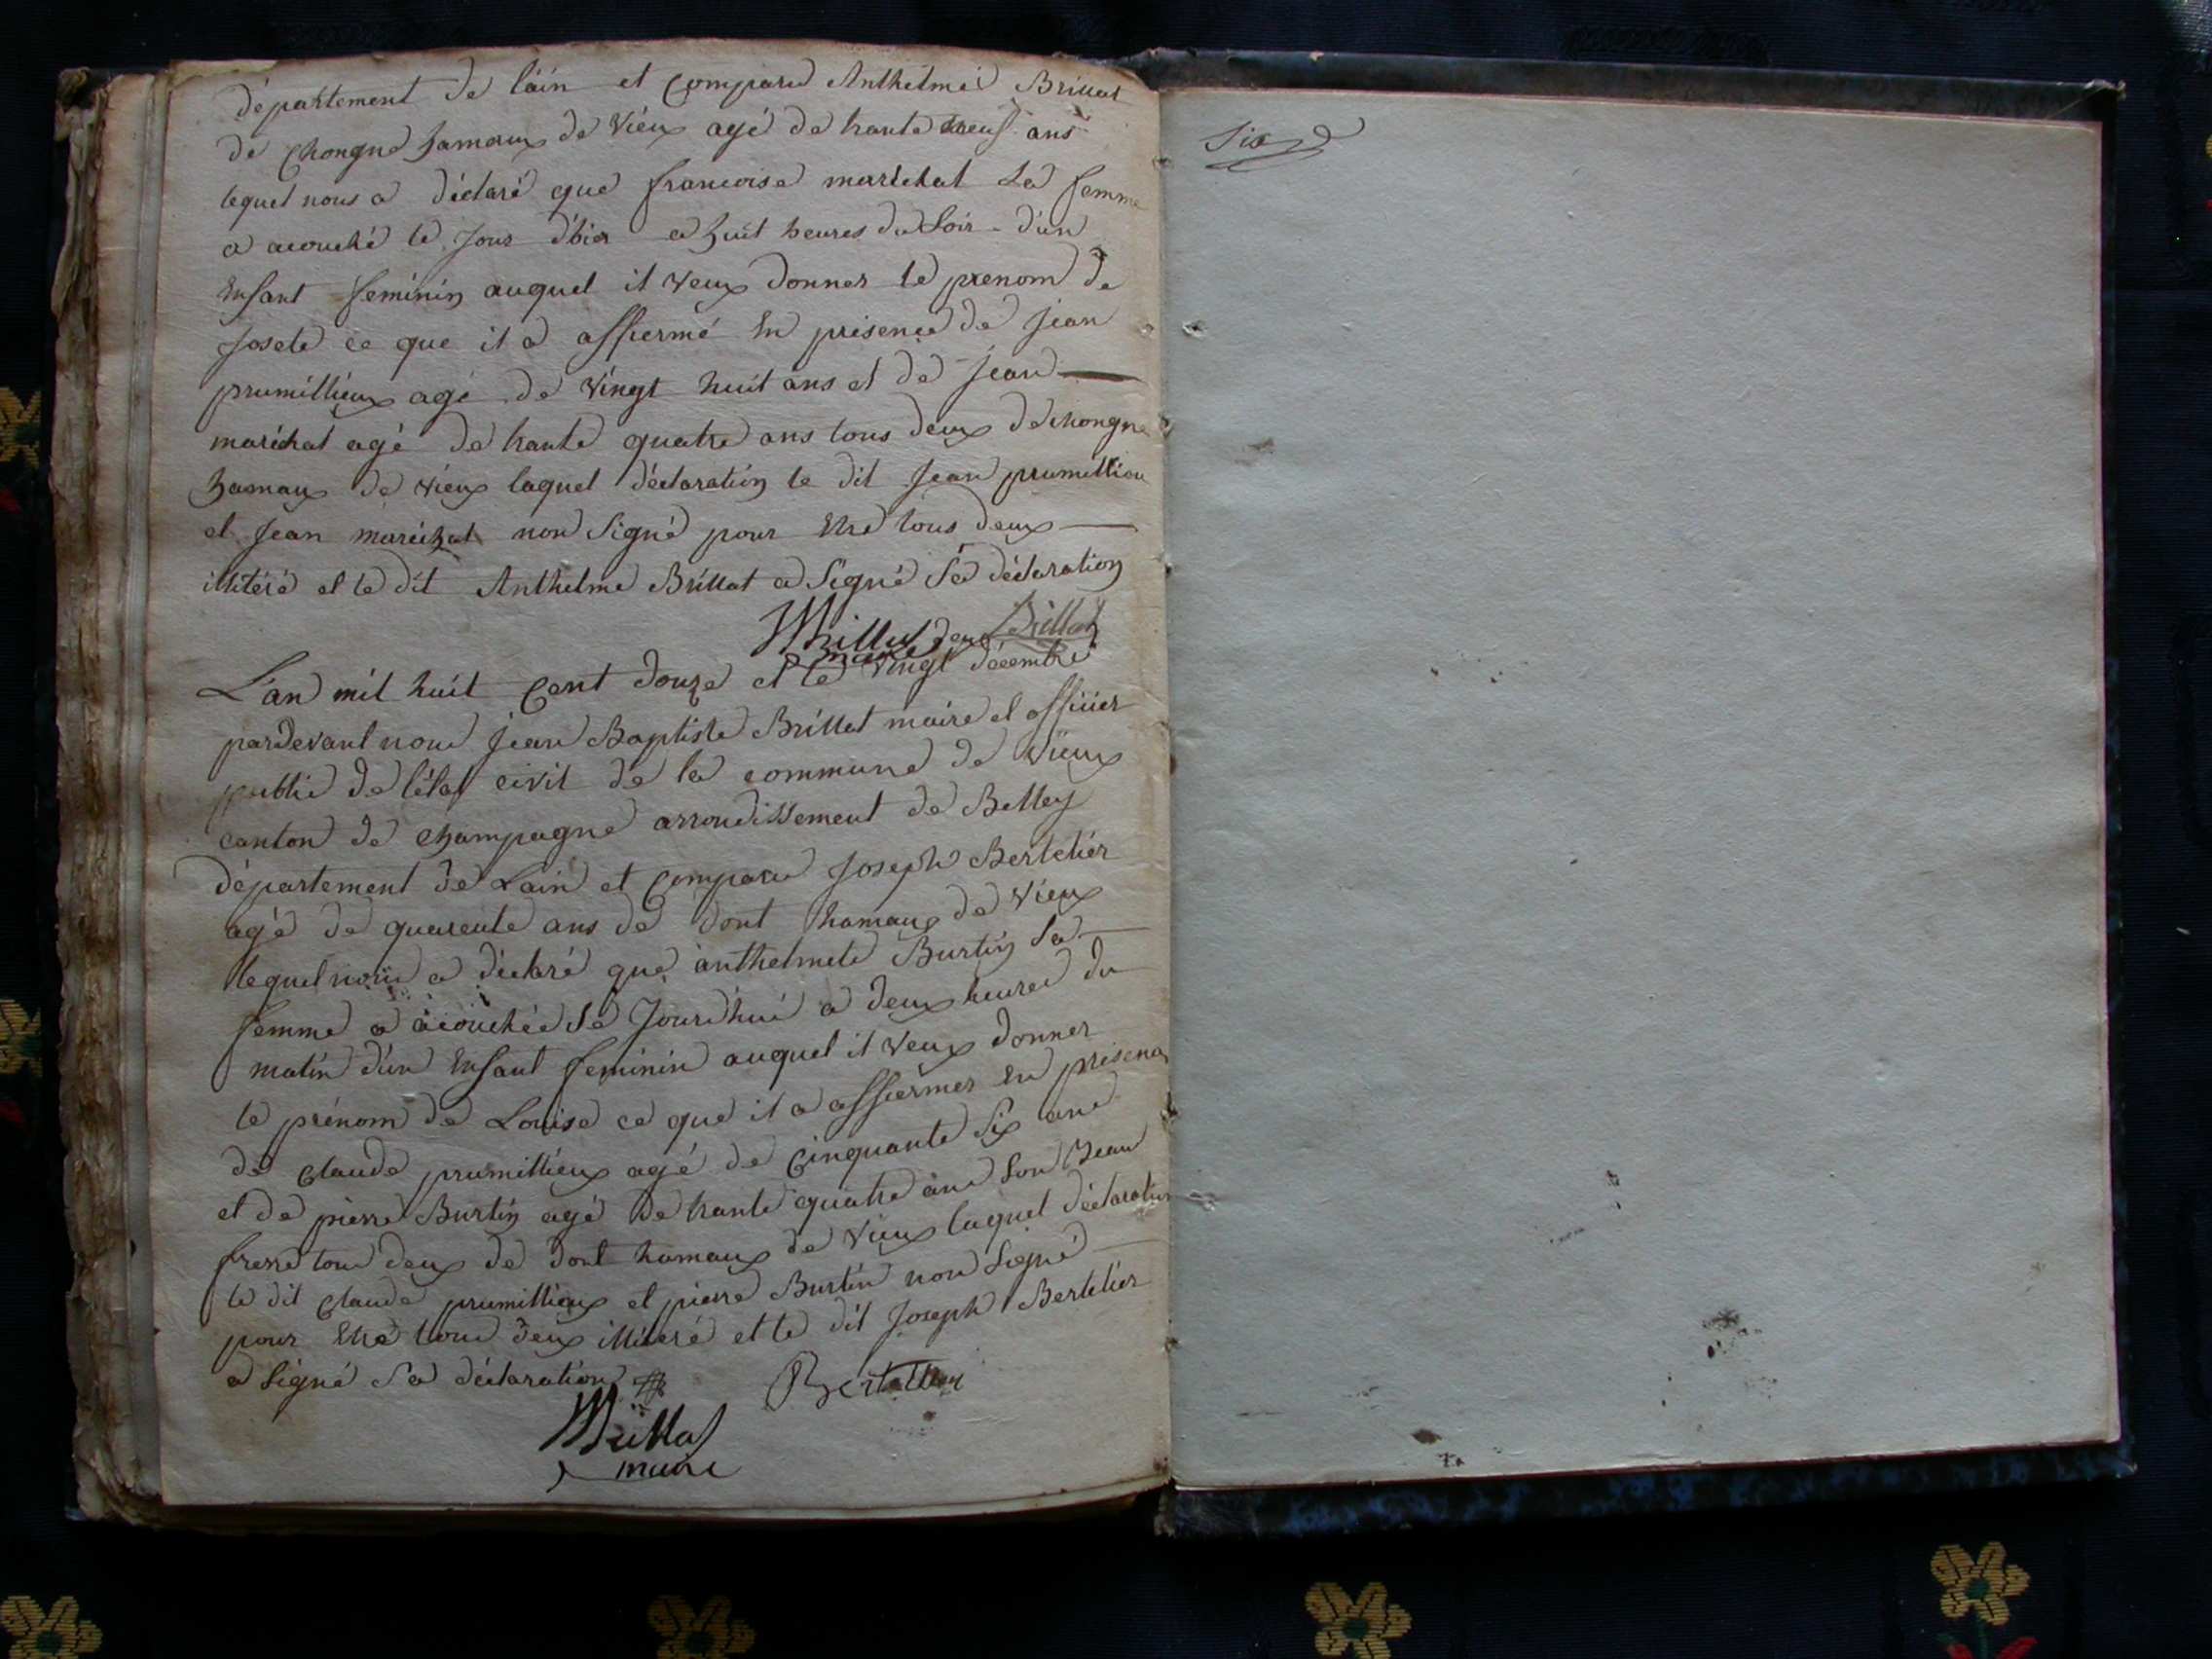 département de láin et comparu Anthelme Brillat
de chongne hamaux de vieux agé de trante neuf ans
lequel nous a déclaré que francoise maréchal Sa femme
a acouché le Jour d'hier a huit heures du Soir d'un
Enfant feminin auquel il veux donner le prenom de
Josete ce que il a affiermé En présence de jean
prumillieux agé de vingt huit ans et de jean
maréchal agé de trante quatre ans tous deux de chongne
hamaux de vieux laquel déclaration le dit Jean prumillieu
et Jean maréchal non Signé pour Etre tous deux
illitéré et le dit Anthelme Brillat a Signé Sa déclaration
Brillat Brillat
maire
L'an mil huit cent douze et le vingt décembre
pardevant nous jean Baptiste Brillat maire et officier
public de l'état civil de la commune de vieux
canton de champagne arrondissement de Belley
département de Lain et comparu Joseph Bertelier
agé de quarente ans de dont hamaux de vieux
lequel nous a déclaré que anthelmete Burtin Sa
femme a acouchée Se Jourdhui a deux heures du
matin d'un Enfant feminin auquel il veux donner
le prénom de Louise ce que il a affiermer En présence
de claude prumillieux agé de cinquante Six ans
et de pierre Burtin agé de trante quatre ans Son Beau
frerre tous deux de dont hamaux de vieux laquel déclaration
le dit claude prumillieux et pierre Burtin non Signé
pour Etre tous deux illiteré et le dit Joseph Bertelier
a Signé Sa déclaration Bertellier
Brillat
maire
Six